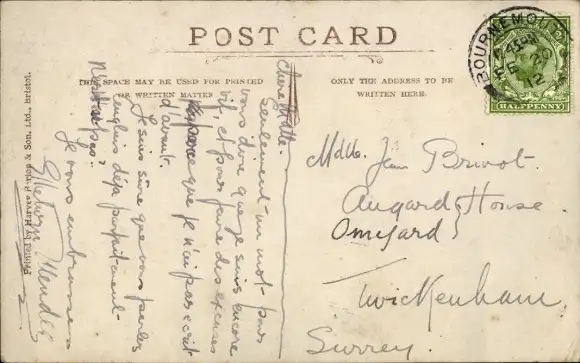 POST CARD
THIS SPACE MAY BE USED FOR PRINTED
OR WRITTEN MATTER
ONLY THE ADDRESS TO BE
WRITTEN HERE.
BOURNEMOUTH
FE 20
12
HALFPENNY
Printed by Harvey Barton & Son, Ltd., Bristol.
chère
Seulement un mot pour
vous dire que je suis encore
vif, et pour faire des excuses
que je n'ai pas écrit
d'avant.
Je suis sûre que vous parlez
anglais déjà parfaitement
N'est-ce pas?
Je vous embrasse
Mendes
Mdlle. Jean Brivot
Augard House
Omeyard
Twickenham
Surrey.